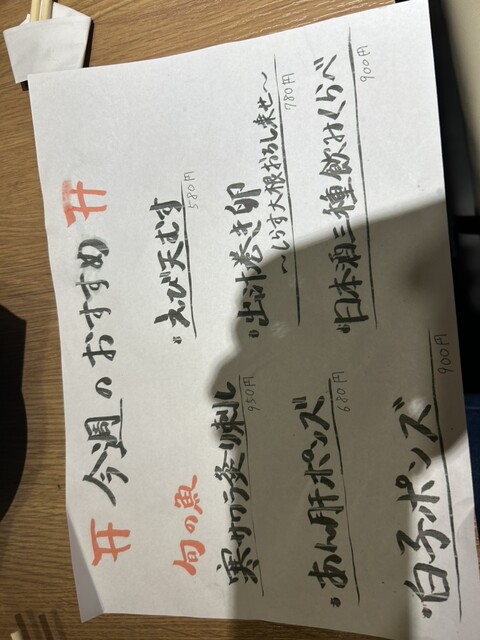 今週のおすすめ
旬の魚
寒サワラ炙り刺し
950円
・あん肝ポンズ
680円
・白子ポンズ
900円
・えび天むす
580円
・出汁巻き卵
〜しらす大根おろし乗せ〜
780円
・日本酒三種飲みくらべ
900円